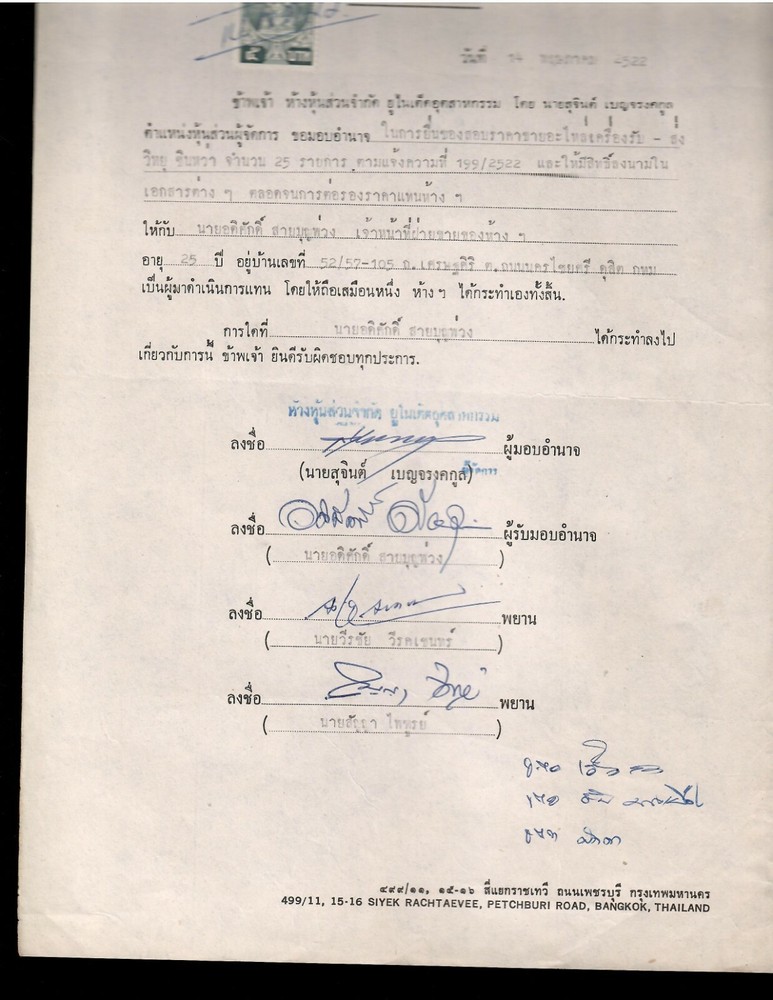 ๕ บาท
วันที่ 14 พฤษภาคม 2522
ข้าพเจ้า ห้างหุ้นส่วนจำกัด ยูไนเต็ดอุตสาหกรรม โดย นายสุจินต์ เบญจรงคกูล
ตำแหน่งหุ้นส่วนผู้จัดการ ขอมอบอำนาจ ในการยื่นซองสอบราคาขายอะไหล่เครื่องรับ - ส่ง
วิทยุ ซินทว่า จำนวน 25 รายการ ตามแจ้งความที่ 199/2522 และให้มีสิทธิ์ลงนามใน
เอกสารต่าง ๆ ตลอดจนการต่อรองราคาแทนห้าง ฯ
ให้กับ นายอดิศักดิ์ สายบุญห่วง เจ้าหน้าที่ฝ่ายขายของห้าง ฯ
อายุ 25 ปี อยู่บ้านเลขที่ 52/57-105 ถ.เศรษฐศิริ ต.ถนนนครไชยศรี ดุสิต กทม
เป็นผู้มาดำเนินการแทน โดยให้ถือเสมือนหนึ่ง ห้างฯ ได้กระทำเองทั้งสิ้น.
การใดที่ นายอดิศักดิ์ สายบุญห่วง ได้กระทำลงไป
เกี่ยวกับการนี้ ข้าพเจ้า ยินดีรับผิดชอบทุกประการ.
ห้างหุ้นส่วนจำกัด ยูไนเต็ดอุตสาหกรรม
ลงชื่อ ผู้มอบอำนาจ
(นายสุจินต์ เบญจรงคกูล) ผู้จัดการ
ลงชื่อ ผู้รับมอบอำนาจ
( นายอดิศักดิ์ สายบุญห่วง )
ลงชื่อ พยาน
( นายวีรชัย วีรคเชนทร์ )
ลงชื่อ พยาน
( นายสัญญา ไพฑูรย์ )
๔๙๙/๑๑, ๑๕-๑๖ สี่แยกราชเทวี ถนนเพชรบุรี กรุงเทพมหานคร
499/11, 15-16 SIYEK RACHTAEVEE, PETCHBURI ROAD, BANGKOK, THAILAND